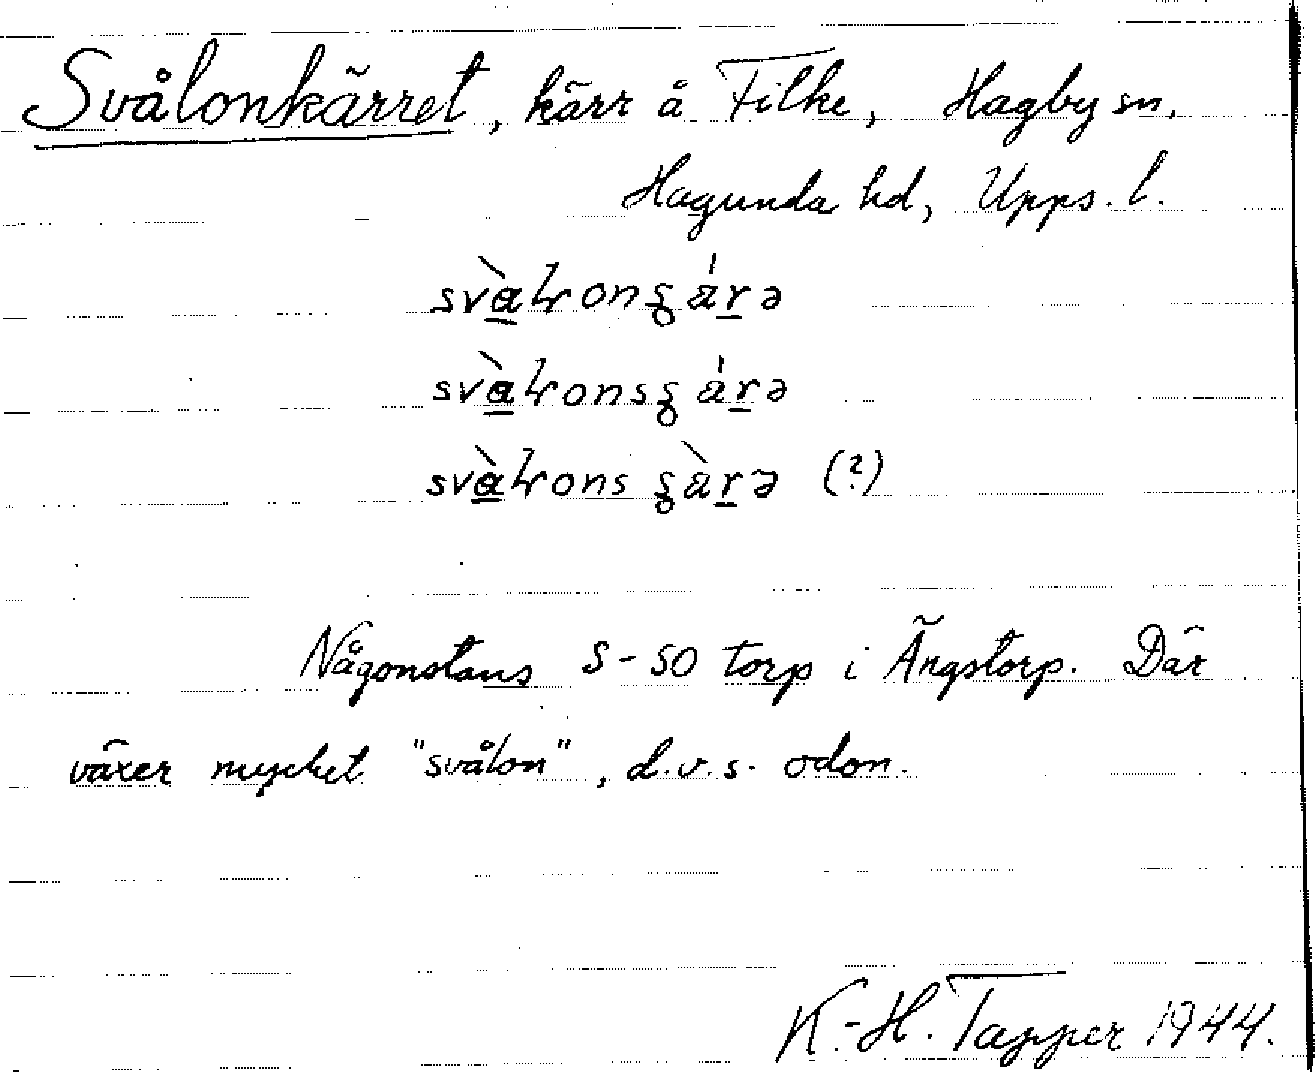 Svålonkärret, kärr å Filke, Hagby sn,
Hagunda hd, Upps. l.
Någonstans S-SO torp i Ängstorp. Där
växer mycket "svålon", d.v.s. odon.
K.-H. Tapper 1944.